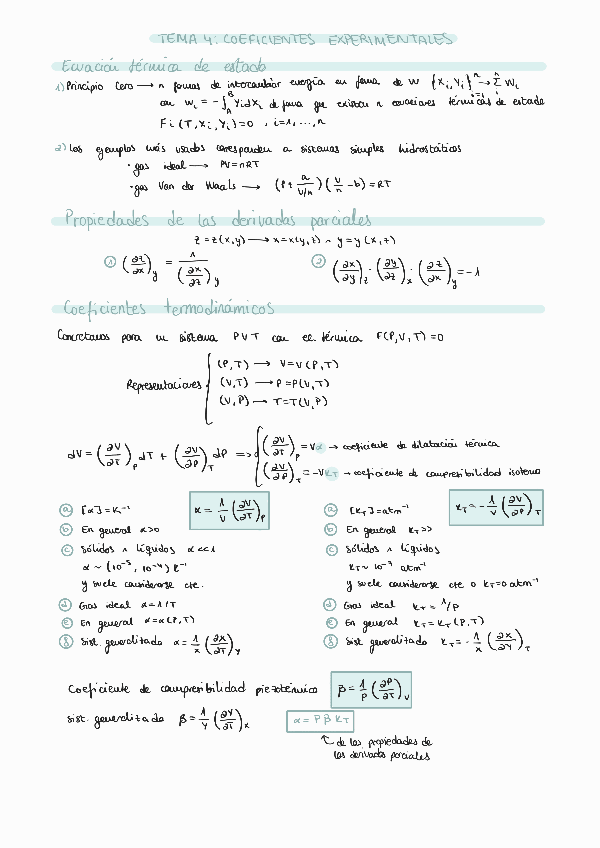 TEMA 4: COEFICIENTES EXPERIMENTALES
Ecuación térmica de estado
1) Principio Cero → n formas de intercambiar energía en forma de W {Xi, Yi}ⁿᵢ₌₁ → Σⁿᵢ Wi
con Wi = -∫ᴬᴮ YidXi de forma que existen n ecuaciones térmicas de estado
Fi (T, Xi, Yi) = 0 , i=1, ..., n
2) Los ejemplos más usados corresponden a sistemas simples hidrostáticos
· gas ideal → PV = nRT
· gas Van der Waals → (P + a/(V/n)) (V/n - b) = RT
Propiedades de las derivadas parciales
z = z(x,y) → x = x(y,z) ∧ y = y(x,z)
① (∂z/∂x)y = 1/(∂x/∂z)y
② (∂x/∂y)z · (∂y/∂z)x · (∂z/∂x)y = -1
Coeficientes termodinámicos
Concretamos para un sistema PVT con ec. térmica F(P,V,T) = 0
Representaciones { (P,T) → V = V(P,T)
(V,T) → P = P(V,T)
(V,P) → T = T(V,P)
dV = (∂V/∂T)P dT + (∂V/∂P)T dP => { (∂V/∂T)P = Vα → coeficiente de dilatación térmica
(∂V/∂P)T = -VκT → coeficiente de compresibilidad isoterma
ⓐ [α] = K⁻¹
α = 1/V (∂V/∂T)P
ⓑ En general α>0
ⓒ Sólidos ∧ líquidos α<<1
α ~ (10⁻³, 10⁻⁴) K⁻¹
y suele considerarse cte.
ⓓ Gas ideal α = 1/T
ⓔ En general α = α(P,T)
ⓕ Sist. generalizado α = 1/x (∂X/∂T)Y
ⓐ [κT] = atm⁻¹
κT = -1/V (∂V/∂P)T
ⓑ En general κT>>
ⓒ Sólidos ∧ líquidos
κT ~ 10⁻³ atm⁻¹
y suele considerarse cte o κT = 0 atm⁻¹
ⓓ Gas ideal κT = 1/P
ⓔ En general κT = κT (P,T)
ⓕ Sist. generalizado κT = -1/x (∂X/∂Y)T
Coeficiente de compresibilidad piezotérmico β = 1/P (∂P/∂T)V
Sist. generalizado β = 1/Y (∂Y/∂T)x
α = P β κT
↑ de las propiedades de
las derivadas parciales